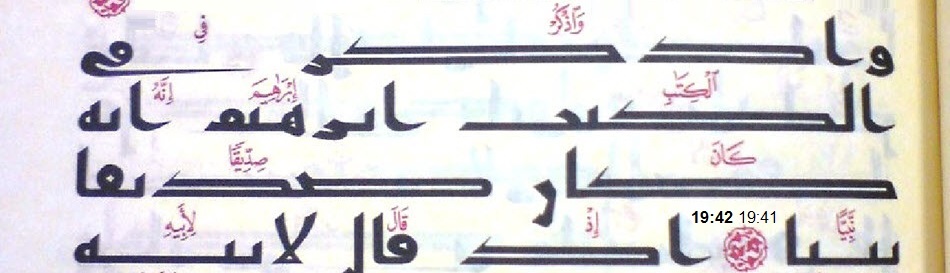 وَٱذْكُرْ فِي
واذكر في
ٱلْكِتَٰبِ إِبْرَٰهِيمَ إِنَّهُۥ
الكتب ابرهيم انه
كَانَ صِدِّيقًا
كان صديقا
نَّبِيًّا 19:42 19:41 إِذْ قَالَ لِأَبِيهِ
نبيا اذ قال لابيه